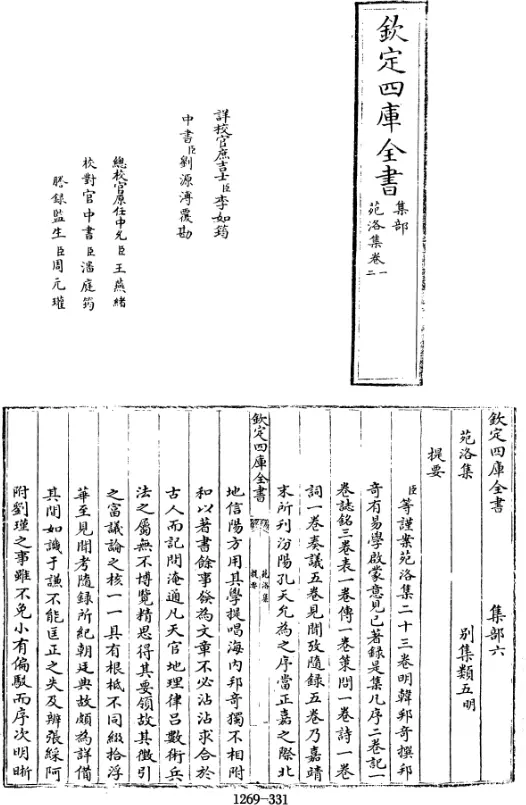 欽定四庫全書
集部
苑洛集卷一
二
詳校官庶吉士臣李如筠
中書臣劉源溥覆勘
總校官原任中允臣王燕緒
校對官中書臣潘庭筠
謄錄監生臣周元瓘
欽定四庫全書
集部六
苑洛集
別集類五明
提要
臣等謹案苑洛集二十三卷明韓邦奇撰邦
奇有易學啟蒙意見已著錄是集凡序二卷記一
卷誌銘三卷表一卷傳一卷策問一卷詩一卷
詞一卷奏議五卷見聞攷隨錄五卷乃嘉靖
末所刋汾陽孔天允為之序當正嘉之際北
欽定四庫全書
苑洛集
提要
地信陽方用其學提唱海內邦奇獨不相附
和以著書餘事發為文章不必沾沾求合於
古人而記問淹通凡天官地理律吕數術兵
法之屬無不博覽精思得其要領故其徴引
之富議論之核一一具有根柢不同綴拾浮
華至見聞考隨錄所紀朝廷典故頗為詳備
其間如譏于謙不能匡正之失及辦張綵阿
附劉瑾之事雖不免小有偏駁而序次明晰
1269-331